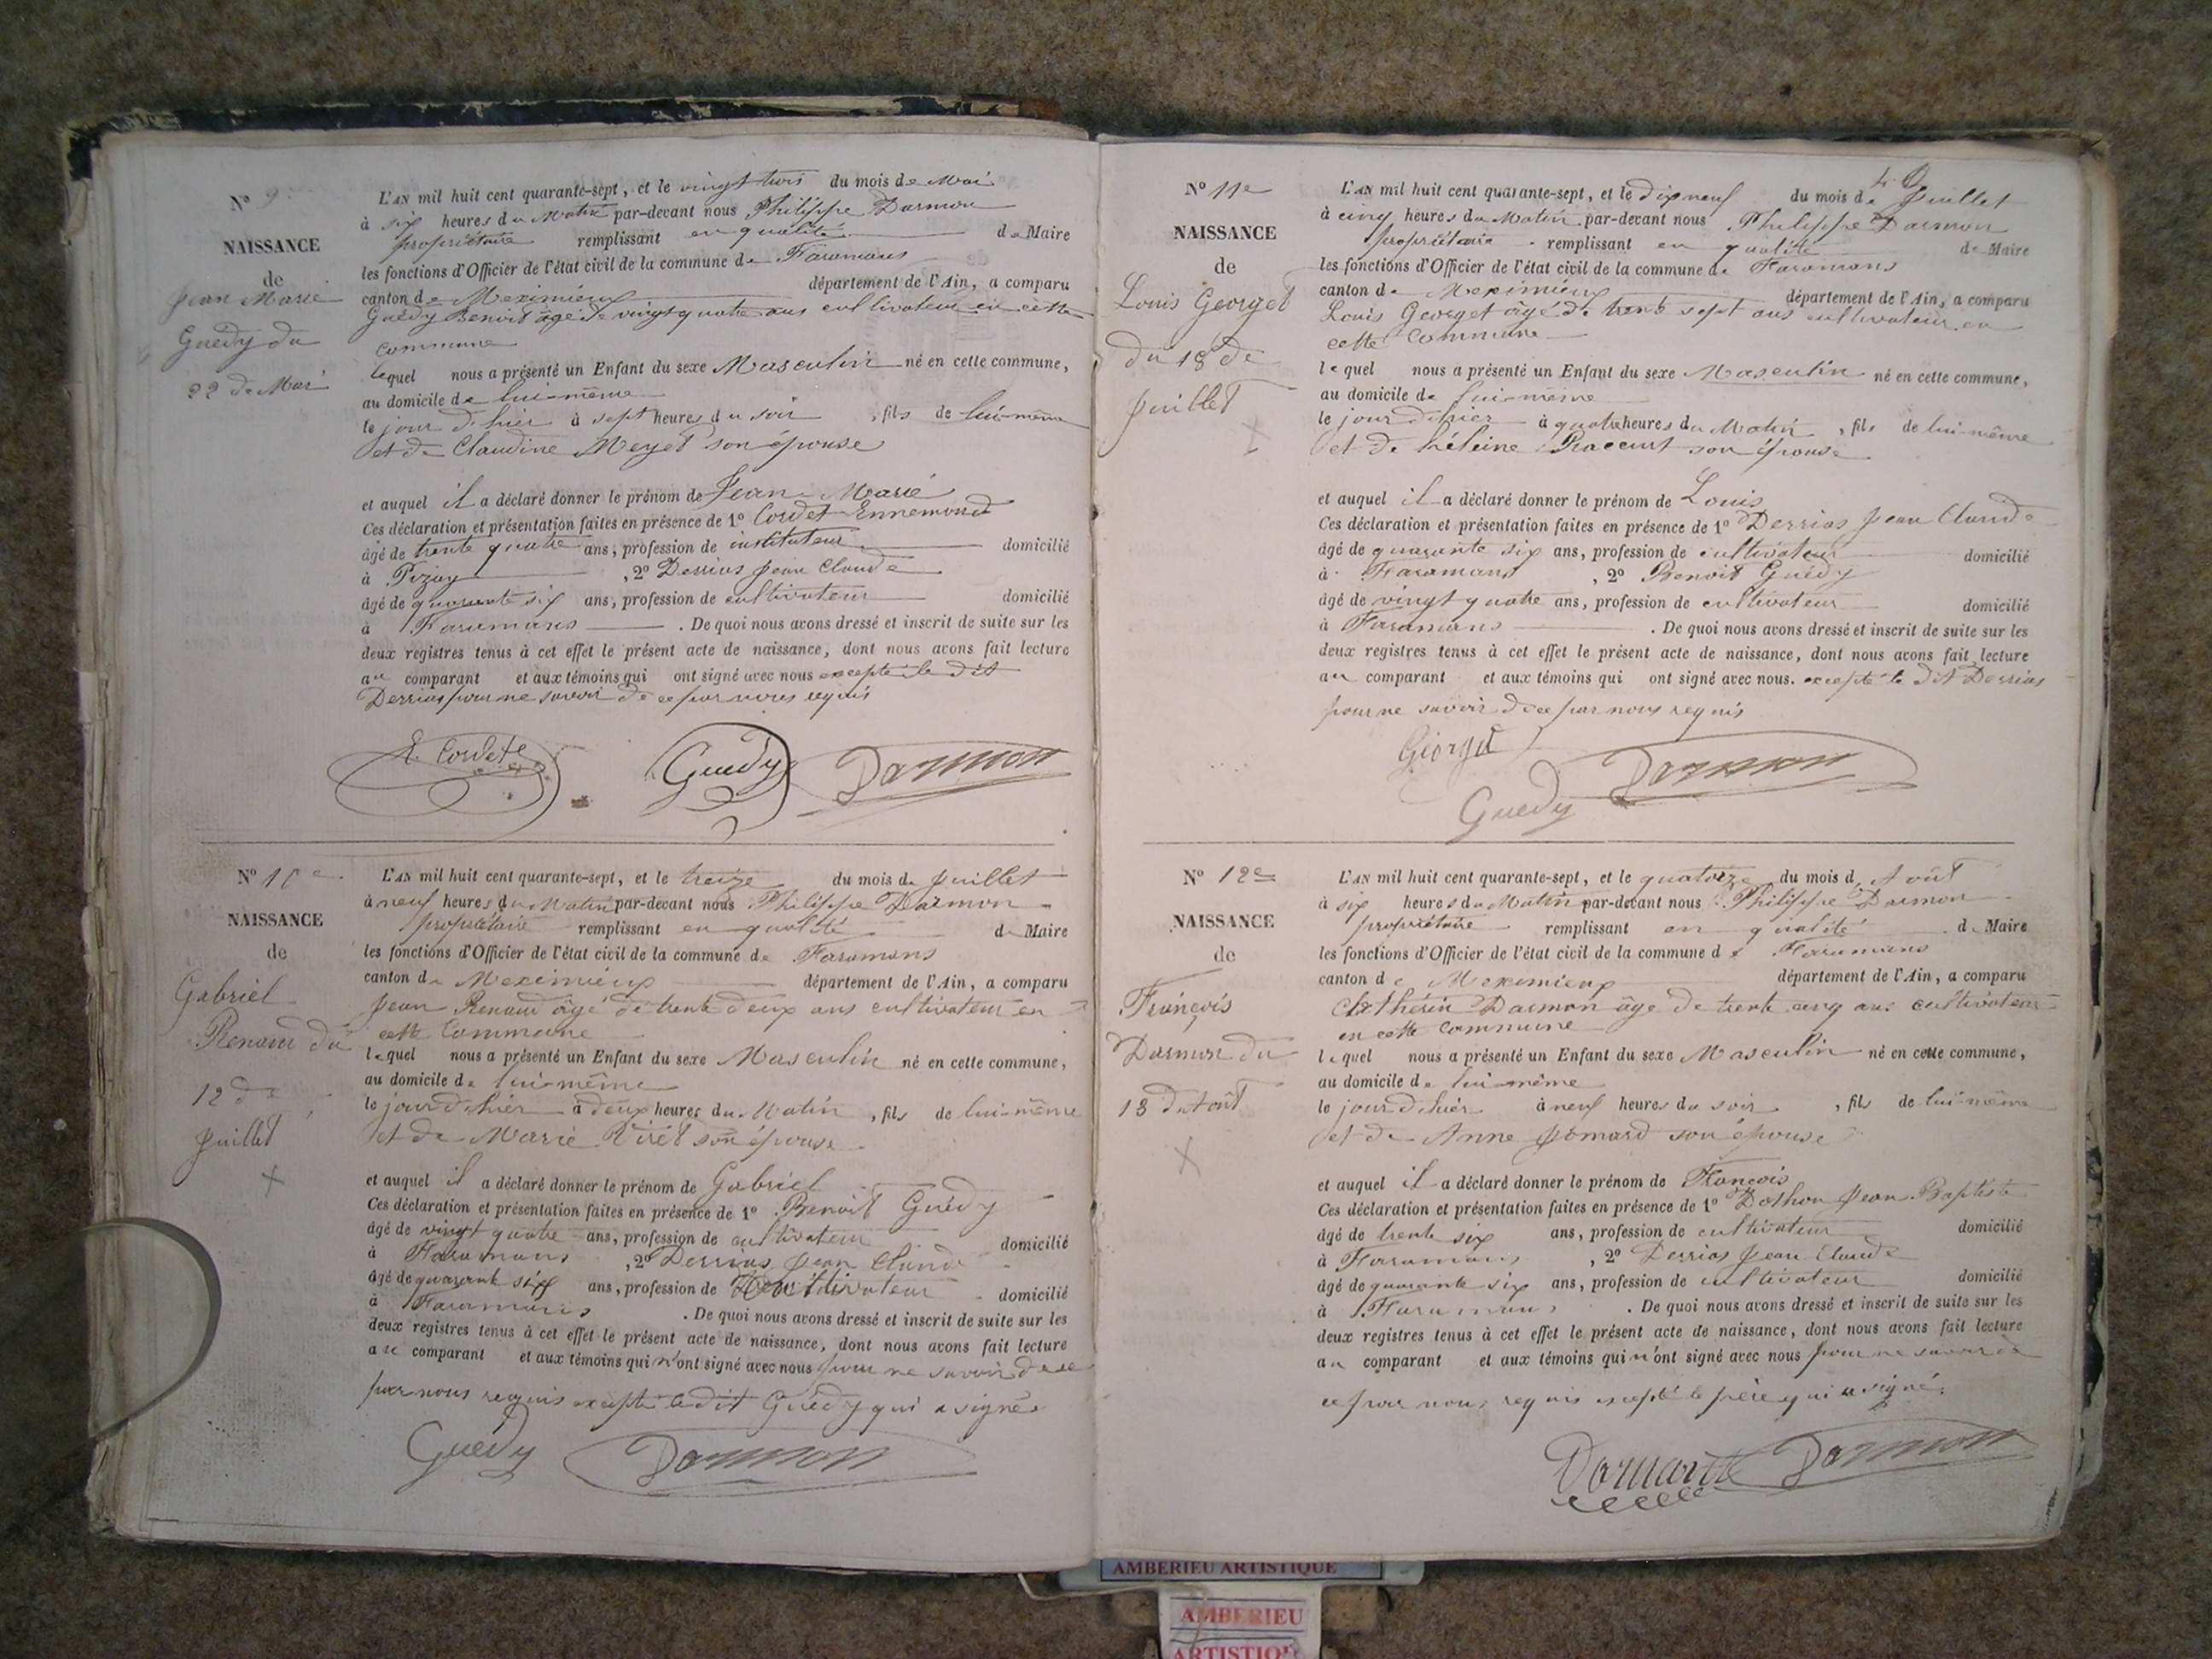 N° 9
NAISSANCE
de
Jean Marie
Guédy du
22 de Mai
L'AN mil huit cent quarante-sept, et le vingt trois du mois de Mai
à six heures du Matin par-devant nous Philippe Darmon
propriétaire remplissant en qualité de Maire
les fonctions d'Officier de l'état civil de la commune de Faramans
canton de Meximieux département de l'Ain, a comparu
Guédy Benoit âgé de vingt quatre ans cultivateur en cette
commune
lequel nous a présenté un Enfant du sexe Masculin né en cette commune,
au domicile de lui-même
le jour d'hier à sept heures du soir, fils de lui-même
et de Claudine Meyet son épouse
et auquel il a déclaré donner le prénom de Jean Marie
Ces déclaration et présentation faites en présence de 1° Cordet Ennemond
âgé de trente quatre ans, profession de instituteur domicilié
à Pizay, 2° Derrias Jean Claude
âgé de quarante six ans, profession de cultivateur domicilié
à Faramans. De quoi nous avons dressé et inscrit de suite sur les
deux registres tenus à cet effet le présent acte de naissance, dont nous avons fait lecture
au comparant et aux témoins qui ont signé avec nous excepté le dit
Derrias pour ne savoir de ce par nous requis
E. Cordet Guedy Darmon
N° 10e
NAISSANCE
de
Gabriel
Renaud du
12 de
Juillet
L'AN mil huit cent quarante-sept, et le treize du mois de Juillet
à neuf heures du Matin par-devant nous Philippe Darmon
propriétaire remplissant en qualité de Maire
les fonctions d'Officier de l'état civil de la commune de Faramans
canton de Meximieux département de l'Ain, a comparu
Jean Renaud âgé de trente deux ans cultivateur en
cette Commune
lequel nous a présenté un Enfant du sexe Masculin né en cette commune,
au domicile de lui-même
le jour d'hier à deux heures du Matin, fils de lui-même
et de Marie Virét son épouse
et auquel il a déclaré donner le prénom de Gabriel
Ces déclaration et présentation faites en présence de 1° Benoit Guédy
âgé de vingt quatre ans, profession de cultivateur domicilié
à Faramans, 2° Derrias Jean Claude
âgé de quarante six ans, profession de cultivateur domicilié
à Faramans. De quoi nous avons dressé et inscrit de suite sur les
deux registres tenus à cet effet le présent acte de naissance, dont nous avons fait lecture
au comparant et aux témoins qui n'ont signé avec nous pour ne savoir de ce
par nous requis excepté le dit Guédy qui a signé.
Guedy Darmon
N° 11e
NAISSANCE
de
Louis Georget
du 18 de
Juillet
L'AN mil huit cent quarante-sept, et le dix neuf du mois de Juillet
à cinq heures du Matin par-devant nous Philippe Darmon
propriétaire remplissant en qualité de Maire
les fonctions d'Officier de l'état civil de la commune de Faramans
canton de Meximieux département de l'Ain, a comparu
Louis Georget âgé de trente sept ans cultivateur en
cette Commune
lequel nous a présenté un Enfant du sexe Masculin né en cette commune,
au domicile de lui-même
le jour d'hier à quatre heures du Matin, fils de lui-même
et de héleine son épouse
et auquel il a déclaré donner le prénom de Louis
Ces déclaration et présentation faites en présence de 1° Derrias Jean Claude
âgé de quarante six ans, profession de cultivateur domicilié
à Faramans, 2° Benoit Guédy
âgé de vingt quatre ans, profession de cultivateur domicilié
à Faramans. De quoi nous avons dressé et inscrit de suite sur les
deux registres tenus à cet effet le présent acte de naissance, dont nous avons fait lecture
au comparant et aux témoins qui ont signé avec nous. excepté le dit Derrias
pour ne savoir de ce par nous requis
Georget
Guedy Darmon
N° 12e
NAISSANCE
de
François
Darmon du
13 d'Août
L'AN mil huit cent quarante-sept, et le quatorze du mois d'Août
à six heures du Matin par-devant nous Philippe Darmon
propriétaire remplissant en qualité de Maire
les fonctions d'Officier de l'état civil de la commune de Faramans
canton de Meximieux département de l'Ain, a comparu
Darmon âgé de trente cinq ans cultivateur
en cette commune
lequel nous a présenté un Enfant du sexe Masculin né en cette commune,
au domicile de lui-même
le jour d'hier à neuf heures du soir, fils de lui-même
et de Anne Jomard son épouse
et auquel il a déclaré donner le prénom de François
Ces déclaration et présentation faites en présence de 1° Jean Baptiste
âgé de trente six ans, profession de cultivateur domicilié
à Faramans, 2° Derrias Jean Claude
âgé de quarante six ans, profession de cultivateur domicilié
à Faramans. De quoi nous avons dressé et inscrit de suite sur les
deux registres tenus à cet effet le présent acte de naissance, dont nous avons fait lecture
au comparant et aux témoins qui n'ont signé avec nous pour ne savoir de
ce par nous requis excepté le père qui a signé.
Darmon
AMBERIEU ARTISTIQUE
AMBERIEU
ARTISTIQUE